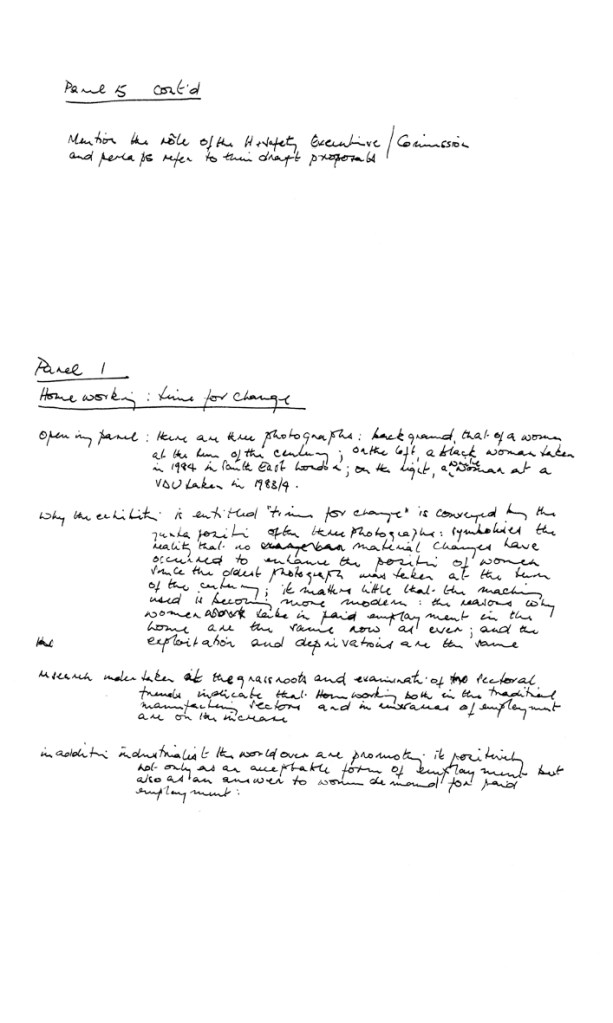 Panel 5 cont'd
Mention the rôle of the H + Safety Executive / Commission
and perhaps refer to their draft proposals
Panel 1
Homeworking : time for change
opening panel : there are three photographs : background, that of a woman
at the turn of the century ; on the left, a black woman taken
in 1984 in South East London ; on the right, a white woman at a
VDU taken in 1983/4.
Why the exhibition is entitled "time for change" is conveyed by the
juxtaposition of the three photographs : symbolises the
reality that no material changes have
occurred to enhance the position of women
since the oldest photograph was taken at the turn
of the century ; it matters little that the machine
used is becoming more modern : the reasons why
women take in paid employment in the
home are the same now as ever ; and the
exploitation and deprivations are the same
research undertaken at the grassroots and examination of sectoral
trends indicate that Homeworking both in the traditional
manufacturing sectors and in areas of employment
are on the increase
in addition industrialist the world over are promoting it positively
not only as an acceptable form of employment but
also as an answer to women demand for paid
employment :